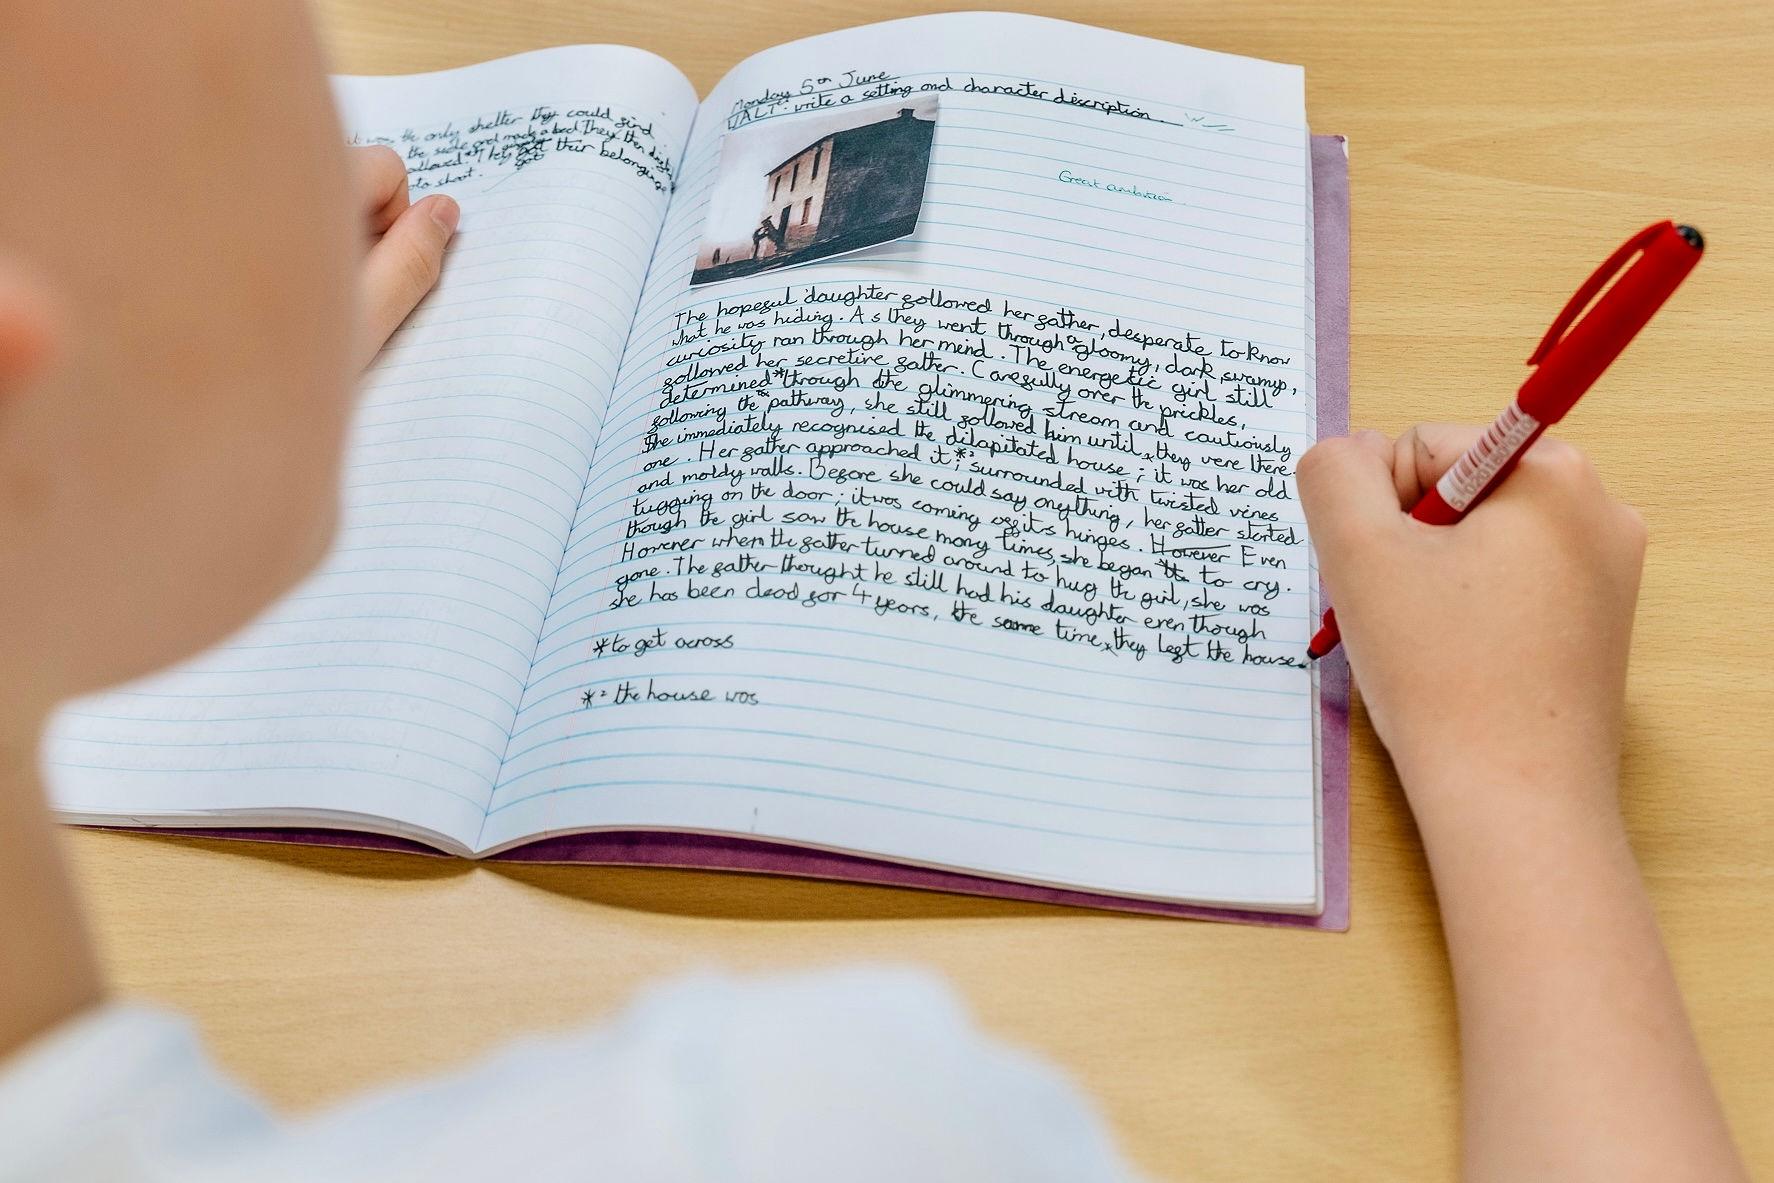 it was the only shelter they could find
the side and made a bed. They then
They got their belongings
got
to shoot.
Monday 5th June
WALT: write a setting and character description.
Great ambition
The hopeful daughter followed her father, desperate to know
what he was hiding. As they went through a gloomy, dark, swamp,
curiosity ran through her mind. The energetic girl still
followed her secretive father. Carefully over the prickles,
determined * through the glimmering stream and cautiously
following the pathway, she still followed him until, they were there.
She immediately recognised the dilapitated house; it was her old
one. Her father approached it;*² surrounded with twisted vines
and moldy walls. Before she could say anything, her father started
tugging on the door; it was coming off its hinges. However Even
though the girl saw the house many times, she began to cry.
However when the father turned around to hug the girl, she was
gone. The father thought he still had his daughter even though
she has been dead for 4 years, the same time, they left the house.
* to get across
*² the house was